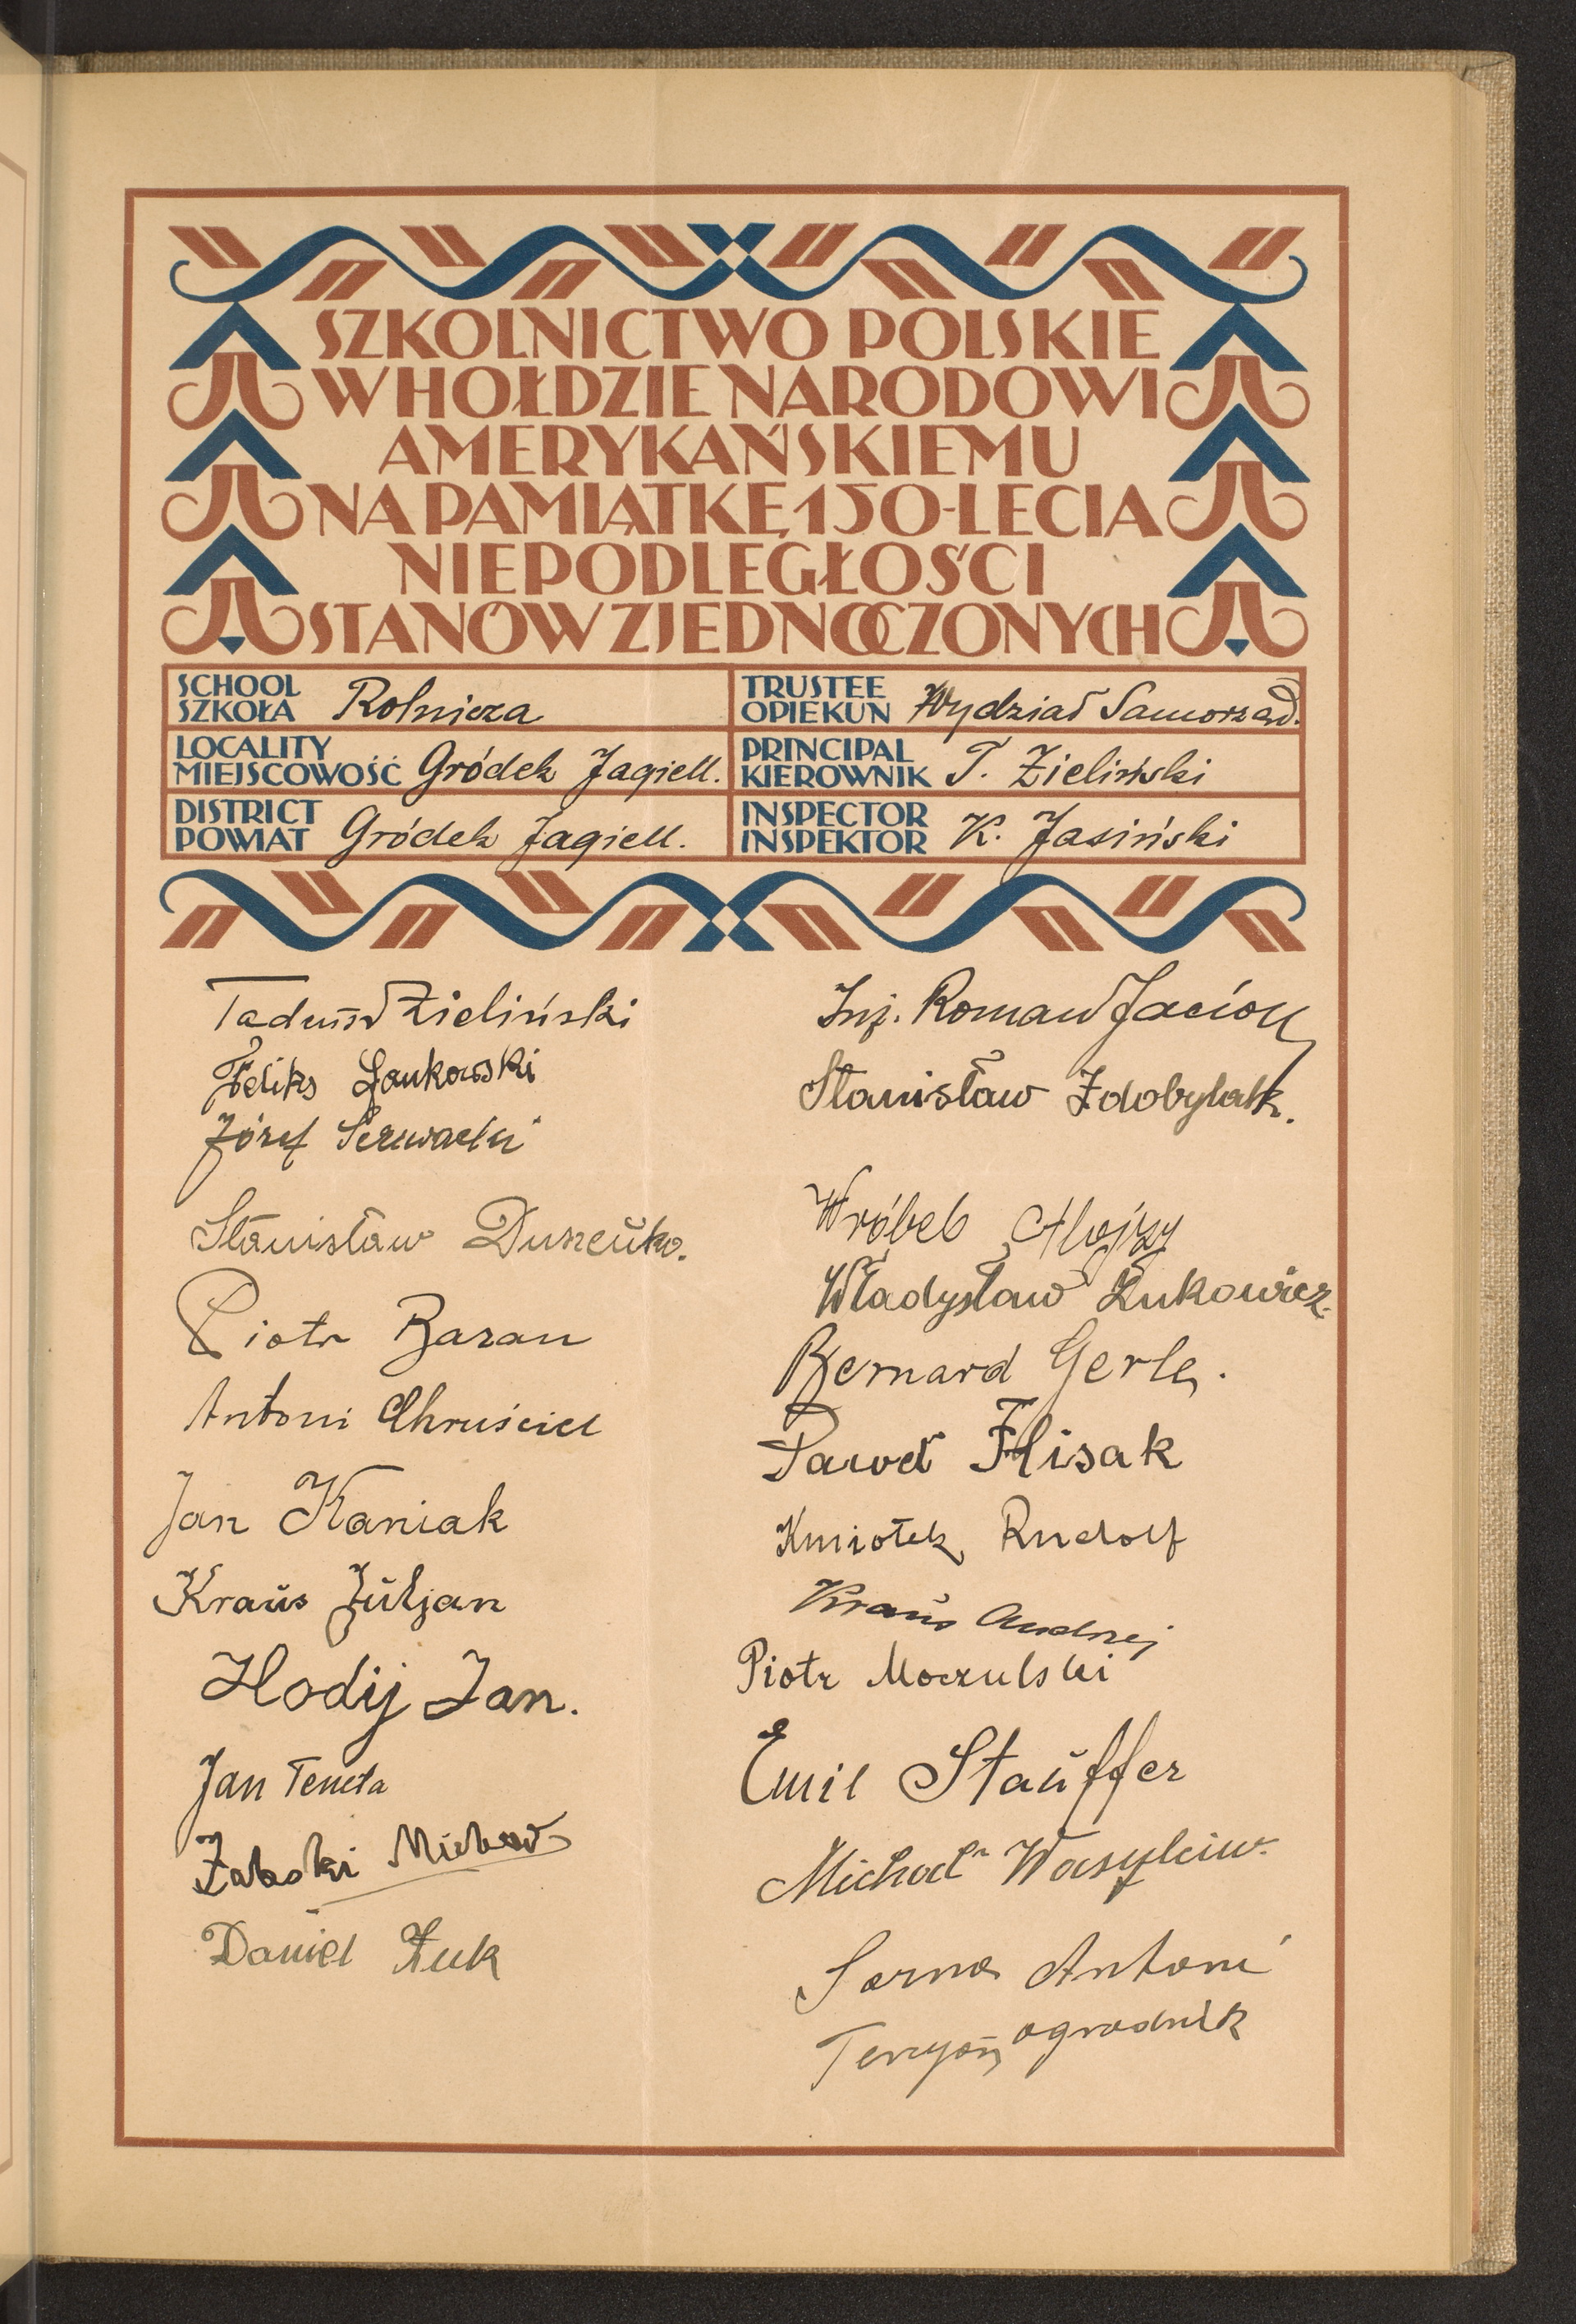 SZKOLNICTWO POLSKIE
W HOŁDZIE NARODOWI
AMERYKAŃSKIEMU
NA PAMIĄTKĘ 150-LECIA
NIEPODLEGŁOŚCI
STANÓW ZJEDNOCZONYCH
SCHOOL
SZKOŁA Rolnicza
TRUSTEE
OPIEKUN Wydział Samorząd.
LOCALITY
MIEJSCOWOŚĆ Gródek Jagiell.
PRINCIPAL
KIEROWNIK T. Zieliński
DISTRICT
POWIAT Gródek Jagiell.
INSPECTOR
INSPEKTOR K. Jasiński
Tadeusz Zieliński
Feliks Jankowski
Józef
Stanisław Duszeńko.
Piotr Baran
Antoni Chruściel
Jan Kaniak
Kraus Juljan
Hodij Jan.
Jan Teneta
Żabski Michał
Daniel Żuk
Inż. Roman
Stanisław Zdobylak.
Wróbel Alojzy
Władysław Żukowicz.
Bernard Gerla.
Paweł Flisak
Kmiotek Rudolf
Kraus Andrzej
Piotr Moczulski
Emil Stauffer
Michał Wasylciw.
Sarna Antoni
ogrodnik